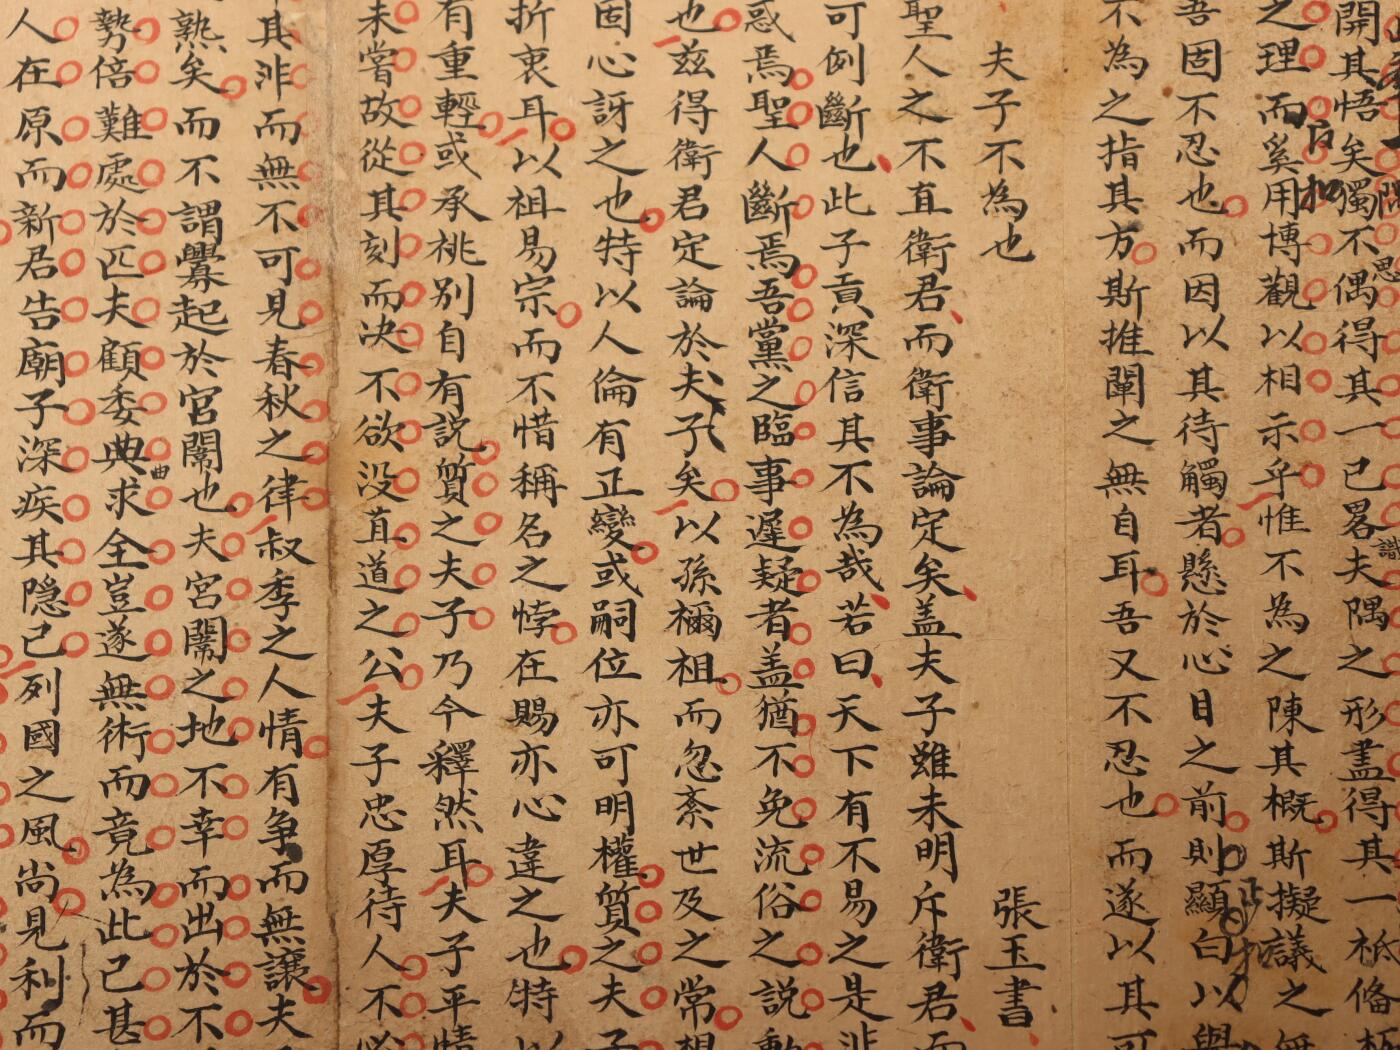 開其悟矣獨不偶得其一已畧夫隅之形盡得其一袛俻
之理而奚用博觀以相示乎惟不為之陳其概斯擬議之無
吾固不忍也而因以其待觸者懸於心目之前則顯白以與
不為之指其方斯推闡之無自耳吾又不忍也而遂以其可
夫子不為也 張玉書
聖人之不直衛君而衛事論定矣盖夫子雖未明斥衛君而
可例斷也此子貢深信其不為哉若曰天下有不易之是非
惑焉聖人斷焉吾黨之臨事遲疑者盖猶不免流俗之説動
也兹得衛君定論於夫子矣以孫禰祖而忽紊世及之常
固心訝之也特以人倫有正變或嗣位亦可明權質之夫子
折衷耳以祖易宗而不惜稱名之悖在賜亦心違之也特以
有重輕或承祧别自有説質之夫子乃今釋然耳夫子平情
未嘗故從其刻而决不欲没直道之公夫子忠厚待人不必
其非而無不可見春秋之律叔季之人情有争而無讓夫
熟矣而不謂釁起於宫闈也夫宫闈之地不幸而出於不
勢倍難處於匹夫顧委典求全豈遂無術而竟為此已甚
人在原而新君告廟子深疾其隐已列國之風尚見利而